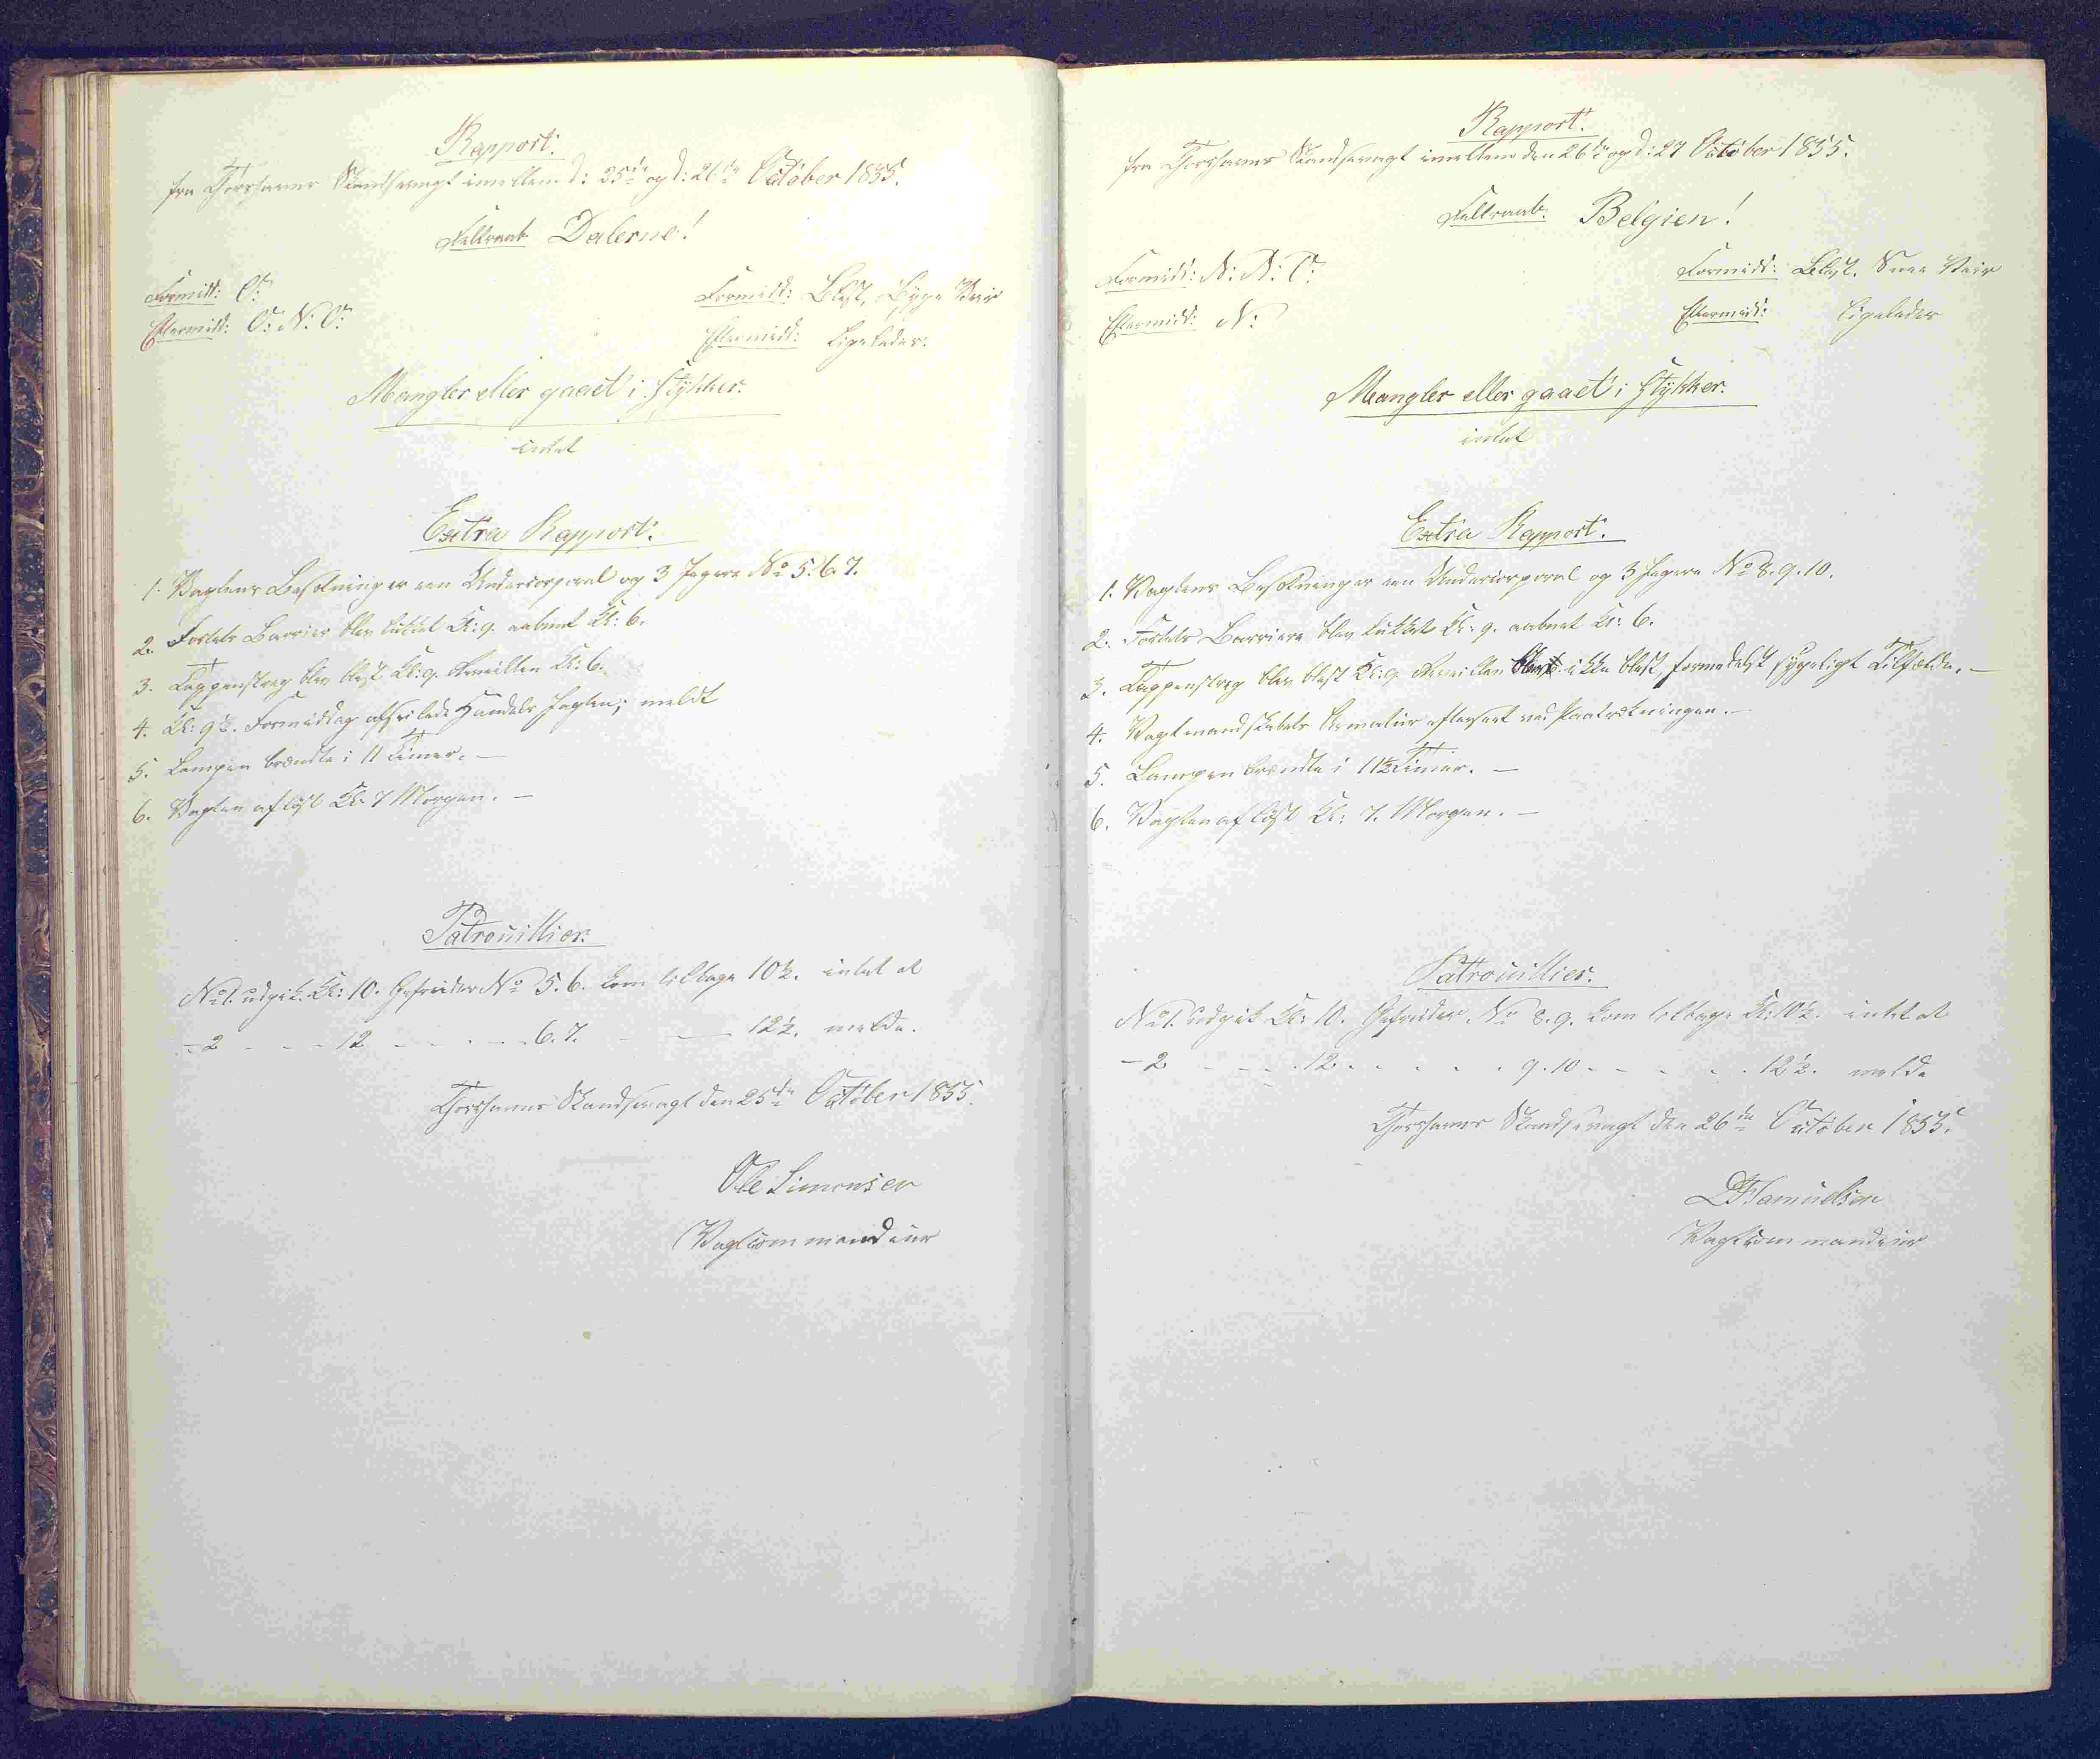 Rapport.
fra Thorshavns Skandsevagt imellem d: 25de og d: 26de October 1855.
Feltraab Dalerne!
Formidd: O:
Formidd: Blæst, Byge Veir
Eftermidd: O: N: O:
Eftermidd: Ligeledes.
Mangler eller gaaet i stykker.
intet
Extra Rapport.
1. Vagtens Besætning er een Undercorporal og 3 Jægere No 5. 6. 7.
2. Fortets Barriere blev lukket Kl: 9. aabnet Kl: 6.
3. Tappenstreg blev blæst Kl: 9. Reveillen Kl: 6.
4. Kl: 9½. Formiddag afseilede Handels Jagten; meldt
5. Lampen brændte i 11 Timer. —
6. Vagten afløst Kl: 7 Morgen. —
Patrouillier.
No 1. udgik Kl: 10. Gefreider No 5. 6. kom tilbage 10½. intet at
- 2 - - - 12 - - - - - 6. 7. - — 12½. melde.
Thorshavns Skandsevagt den 25de October 1855.
Ole Simonsen
Vagtcommandeur
Rapport.
fra Thorshavns Skandsevagt imellem den 26de og d: 27 October 1855.
Feltraab. Belgien!
Formidd: N: N: O:
Formidd: Blæst. Snee Veir
Eftermidd: N:
Eftermidd: Ligeledes
Mangler eller gaaet i stykker.
intet
Extra Rapport.
1. Vagtens Besætning er een Undercorporal og 3 Jægere No 8. 9. 10.
2. Fortets Barriere blev lukket Kl: 9. aabnet Kl: 6.
3. Tappenstreg blev blæst Kl: 9. Reveillen blev ikke blæst, formedelst sygeligt Tilfælde. —
4. Vagtmandskabets Armatur efterseet ved Paatrækningen. —
5. Lampen brændte i 11½ Timer. —
6. Vagten afløst Kl: 7. Morgen. —
Patrouillier.
No 1. Udgik Kl: 10. Gefreider No 8. 9. kom tilbage Kl: 10½. intet at
- 2 - - - 12 - - - - - 9. 10 - - - - - 12½. melde
Thorshavns Skandsevagt den 26de October 1855.
Samuelsen
Vagtcommandeur